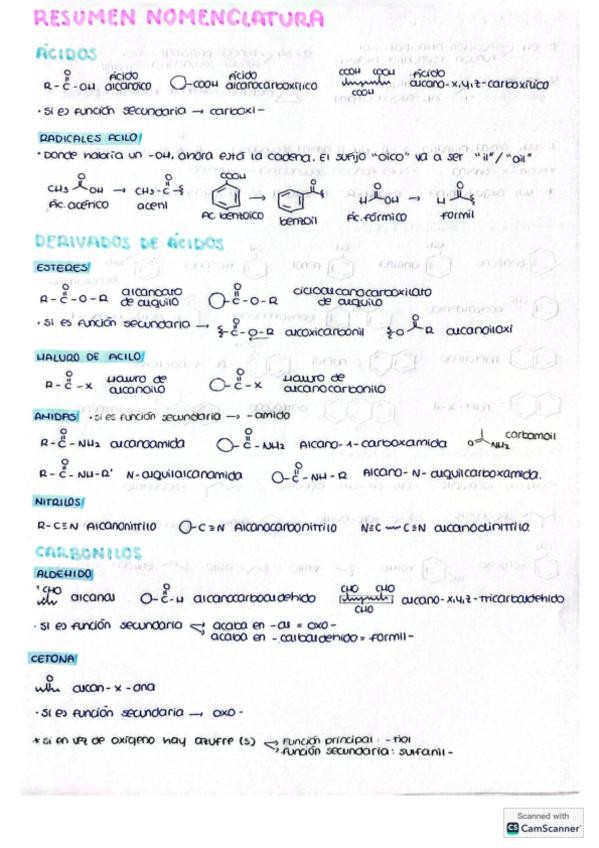 RESUMEN NOMENCLATURA
ÁCIDOS
R-C-OH ácido alcanoico
O
-COOH ácido alcanocarboxílico
COOH COOH
COOH
ácido alcano-x,y,z-carboxílico
· Si es función secundaria → carboxi-
RADICALES ACILO
· Donde habría un -OH, ahora está la cadena. El sufijo "oico" va a ser "il"/"oil"
CH3 OH → CH3-C
O
Ác. acético acetil
COOH
Ác benzoico → benzoil
H OH → H
Ác. fórmico formil
DERIVADOS DE ÁCIDOS
ESTERES
R-C-O-R alcanoato de alquilo
C-O-R cicloalcanocarboxilato de alquilo
· Si es función secundaria → C-O-R alcoxicarbonil O R alcanoiloxi
HALURO DE ACILO
R-C-X Haluro de alcanoilo
C-X Haluro de alcanocarbonilo
AMIDAS · si es función secundaria → -amido
R-C-NH2 alcanoamida C-NH2 Alcano-1-carboxamida O NH2 carbamoil
R-C-NH-R' N-alquilalcanamida C-NH-R Alcano-N-alquilcarboxamida.
NITRILOS
R-C≡N Alcanonitrilo C≡N Alcanocarbonitrilo N≡C C≡N alcanodinitrilo.
CARBONILOS
ALDEHIDO
1 CHO alcanal C-H alcanocarbaldehido CHO CHO
CHO
alcano-x,y,z-tricarbaldehido
· Si es función secundaria acaba en -al = oxo-
acaba en -carbaldehido = formil-
CETONA
O
alcan-x-ona
· Si es función secundaria → oxo-
* Si en vez de oxígeno hay azufre (S) Función principal: -tiol
función secundaria: sulfanil-
Scanned with
CS CamScanner